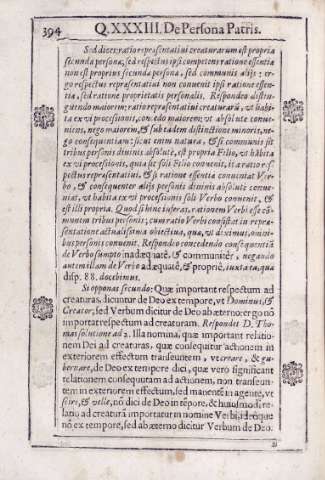 394 Q. XXXIII. De Persona Patris.
Sed dices: ratio representatiui creaturarum est propria
secunda persona, sed respectus ipsi competens ratione essentia
non est proprius secunda persona, sed communis alijs: er-
go respectus representatiui non conuenit ipsi ratione essen-
tia, sed ratione proprietatis personalis. Respondeo distin-
guendo maiorem; ratio representatiui creaturarũ, vt habi-
ta ex vi processionis, concedo maiorem; vt absolute conue-
niens, nego maiorem, & sub eadem distinctione minoris, ne-
go consequentiam: sicut enim natura, & si communis sit
tribus personis diuinis absolute, est propria Filio, vt habita
ex vi processionis, quia sit soli Filio conuenit, ita ratio re-
spectus representatiui, & si ratione essentia conueniat Ver-
bo, & consequenter alijs personis diuinis absolute conue-
niat, vt habita ex vi processionis soli Verbo conuenit, &
est illi propria. Quod si hinc inferas, rationem Verbi esse cõ-
munem tribus personis; cum ratio Verbi consistat in repre-
sentatione actualissima obiectiua, qua, vt diximus, omni-
bus personis conuenit. Respondeo concedendo consequentiã
de Verbo sumpto inadæquatè, & communiter, negando
autem illam de Verbo adæquatè, & propriè, iuxta ea, qua
disp. 88. docebimus.
Si opponas secundo: Quæ important respectum ad
creaturas, dicuntur de Deo ex tempore, vt Dominus, &
Creator, sed Verbum dicitur de Deo ab æterno: ergo nõ
importat respectum ad creaturam. Respondet D. Tho-
mas solutione ad 2. Illa nomina, quæ important relatio-
nem Dei ad creaturas, quæ consequitur actionem in
exteriorem effectum transeuntem, vt creare, & gu-
bernare, de Deo ex tempore dici, quæ verò significant
relationem consequutam ad actionem, non transeun-
tem in exteriorem effectum, sed manentẽ in agente, vt
scire, & velle, nõ dici de Deo in tẽpore, & huiusmodi re-
latio ad creaturã importatur in nomine Verbi, ideòque
nõ ex tempore, sed ab æterno dicitur Verbum de Deo.